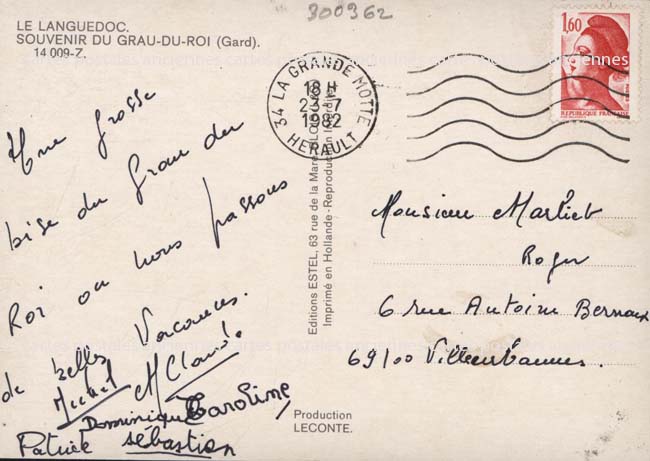 300362
LE LANGUEDOC.
SOUVENIR DU GRAU-DU-ROI (Gard).
14 009-Z
1,60
REPUBLIQUE FRANÇAISE
34 LA GRANDE MOTTE
18 H
23-7
1982
HERAULT
Une grosse
bise du Grau du
Roi ou nous passons
de belles Vacances.
Michel M Claude
Dominique Caroline
Patrick sébastien
Editions ESTEL, 63 rue de la Mare
Imprimé en Hollande - Reproduction interdite
Monsieur Marliet
Roger
6 rue Antoine Bernoux
69100 Villeurbannes.
Production
LECONTE.